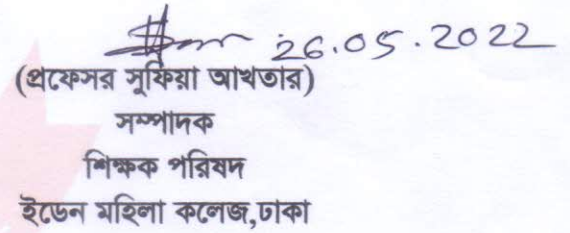 26.05.2022
(প্রফেসর সুফিয়া আখতার)
সম্পাদক
শিক্ষক পরিষদ
ইডেন মহিলা কলেজ,ঢাকা